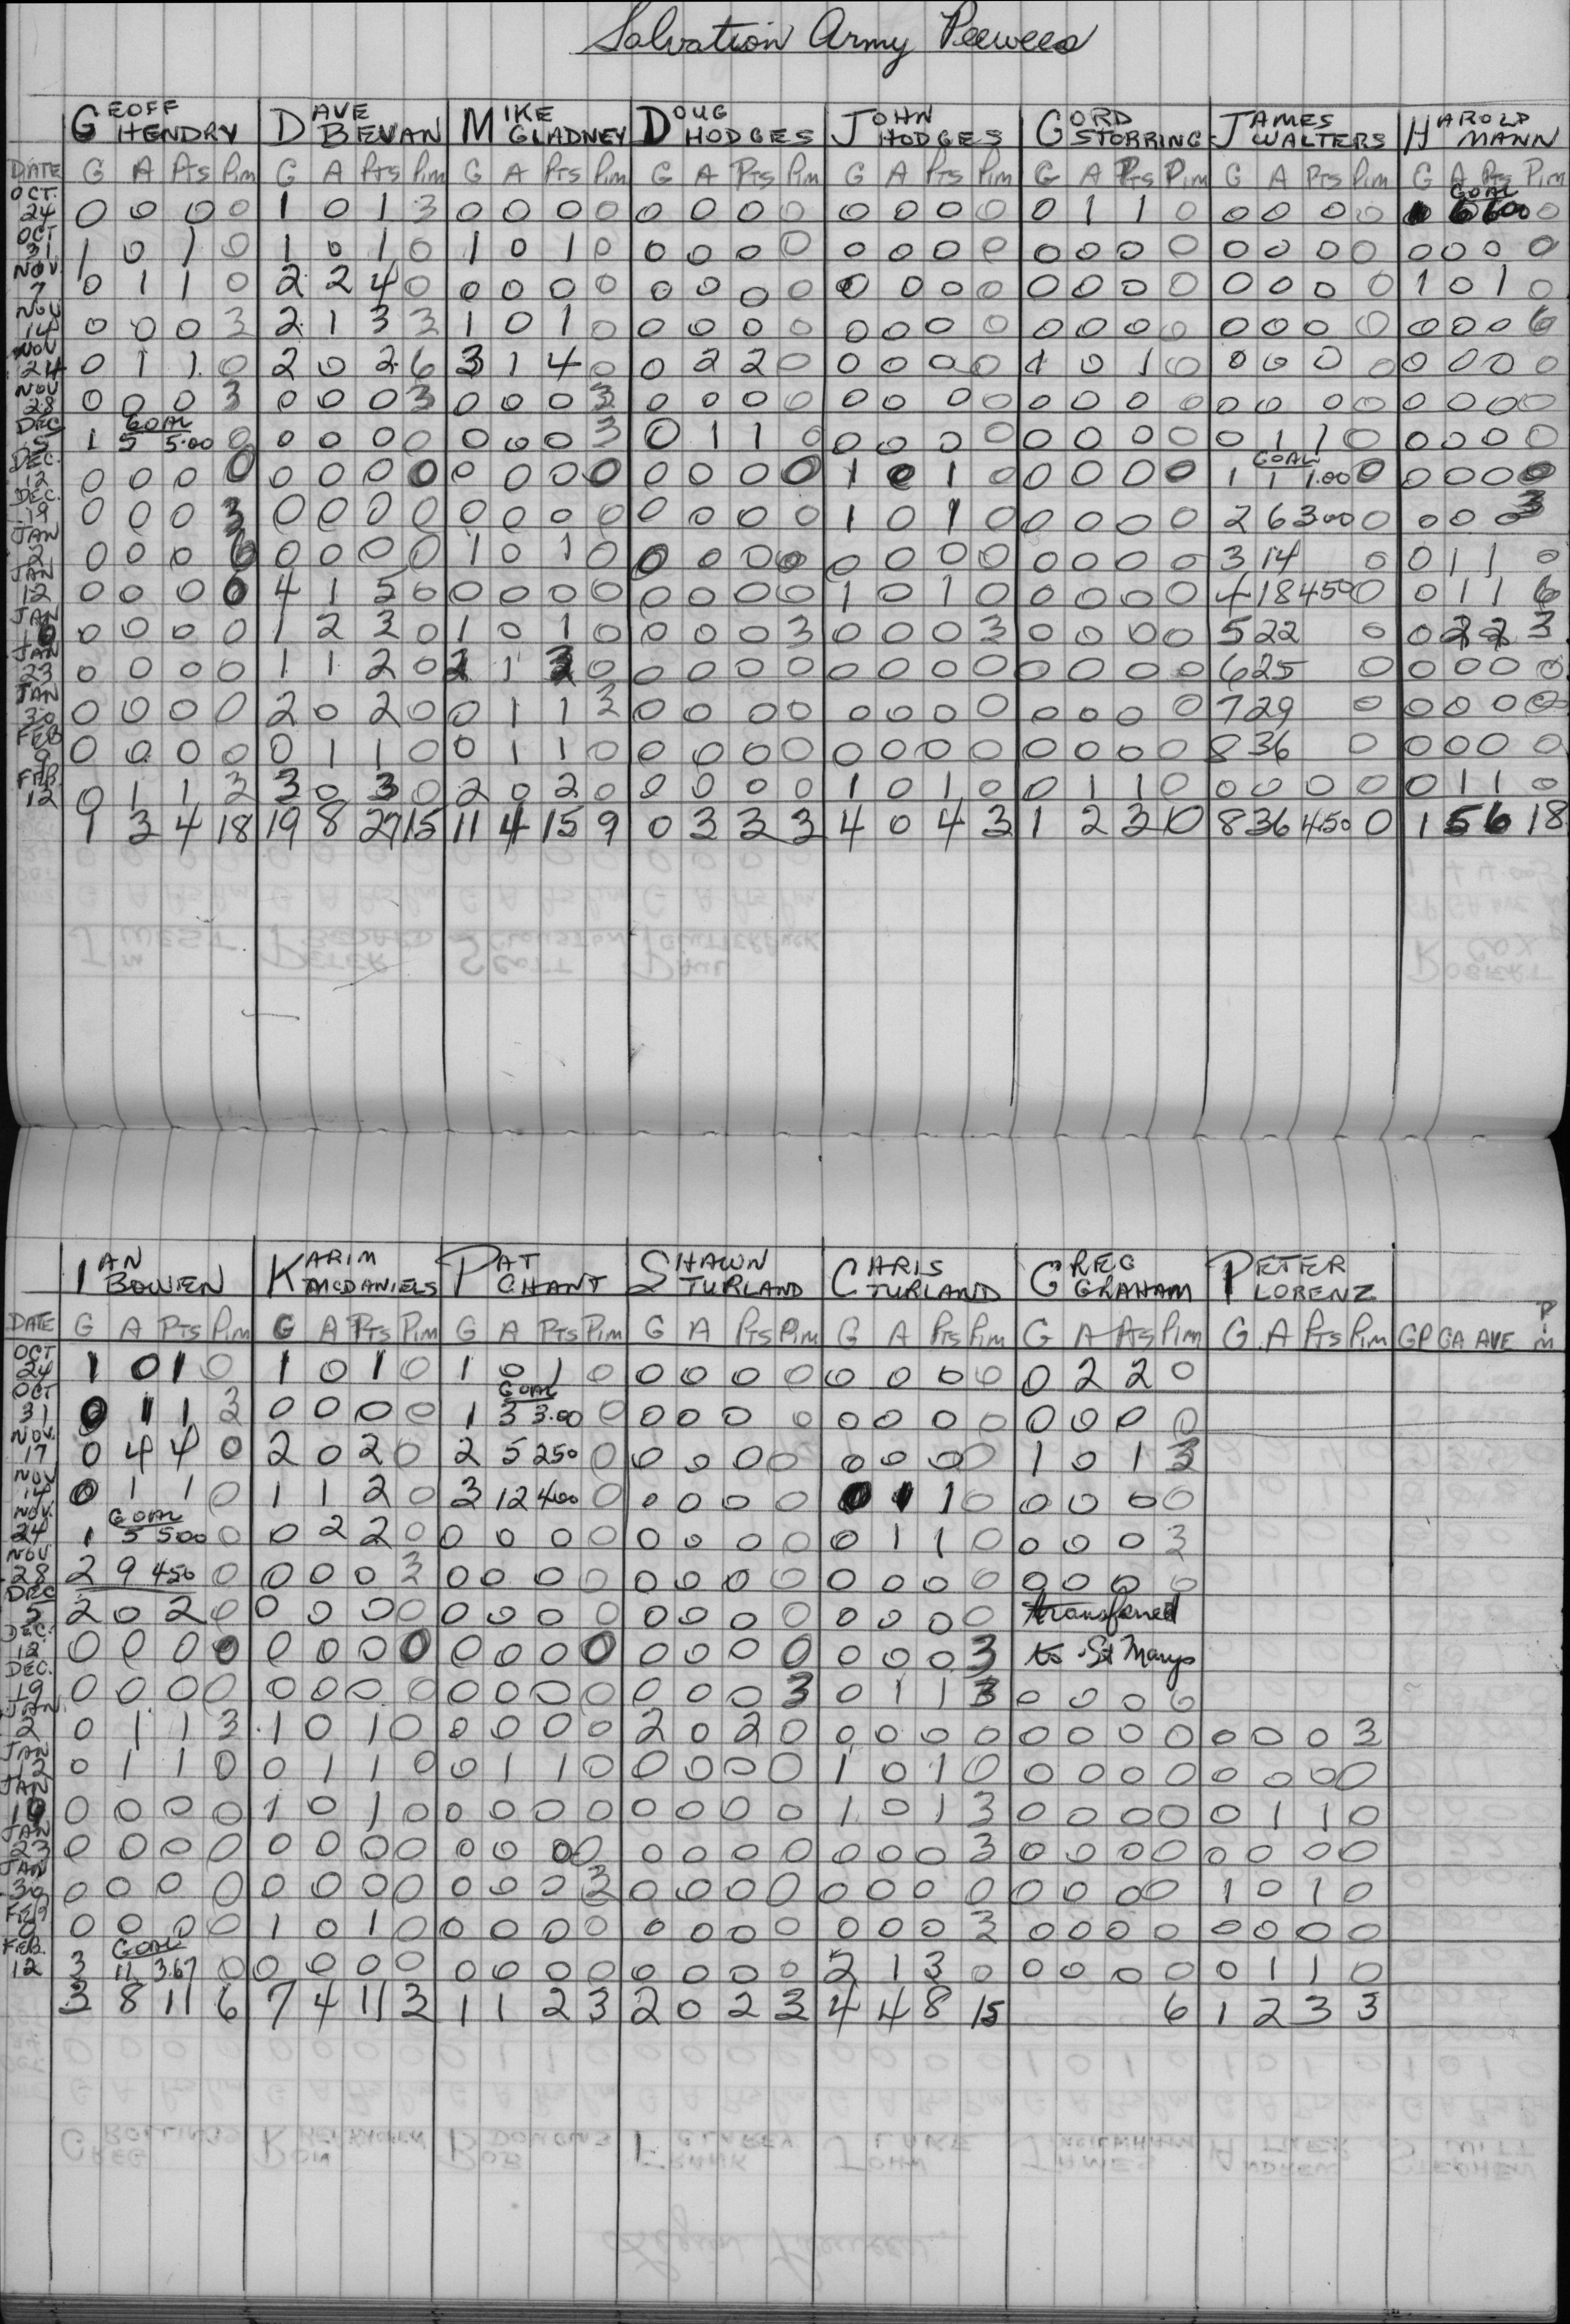 Salvation Army Peewees
GEOFF HENDRY DAVE BEVAN MIKE GLADNEY DOUG HODGES JOHN HODGES GORD STORRING JAMES WALTERS HAROLD MANN
DATE G A PTS Pim G A PTS Pim G A PTS Pim G A PTS Pim G A PTS Pim G A PTS Pim G A PTS Pim G A PTS Pim
OCT. 24 0 0 0 0 1 0 1 3 0 0 0 0 0 0 0 0 0 0 0 0 0 1 1 0 0 0 0 0 GOAL 6 600 0
OCT 31 1 0 1 0 1 0 1 0 1 0 1 0 0 0 0 0 0 0 0 0 0 0 0 0 0 0 0 0 0 0 0 0
NOV. 7 0 1 1 0 2 2 4 0 0 0 0 0 0 0 0 0 0 0 0 0 0 0 0 0 0 0 0 0 1 0 1 0
NOV 14 0 0 0 3 2 1 3 3 1 0 1 0 0 0 0 0 0 0 0 0 0 0 0 0 0 0 0 0 0 0 0 6
NOV 24 0 1 1 0 2 0 2 6 3 1 4 0 0 2 2 0 0 0 0 0 1 0 1 0 0 0 0 0 0 0 0 0
NOV 28 0 0 0 3 0 0 0 3 0 0 0 3 0 0 0 0 0 0 0 0 0 0 0 0 0 0 0 0 0 0 0 0
DEC 5 1 GOAL 5 5.00 0 0 0 0 0 0 0 0 3 0 1 1 0 0 0 0 0 0 0 0 0 0 1 1 0 0 0 0 0
DEC. 12 0 0 0 0 0 0 0 0 0 0 0 0 0 0 0 0 1 0 1 0 0 0 0 0 1 GOAL 1 1.00 0 0 0 0 0
DEC. 19 0 0 0 3 0 0 0 0 0 0 0 0 0 0 0 0 1 0 1 0 0 0 0 0 2 6 300 0 0 0 0 3
JAN 2 0 0 0 6 0 0 0 0 1 0 1 0 0 0 0 0 0 0 0 0 0 0 0 0 3 14 0 0 1 1 0
JAN 12 0 0 0 0 4 1 5 0 0 0 0 0 0 0 0 0 1 0 1 0 0 0 0 0 4 18 450 0 0 1 1 6
JAN 16 0 0 0 0 1 2 3 0 1 0 1 0 0 0 0 3 0 0 0 3 0 0 0 0 5 22 0 0 2 2 3
JAN 23 0 0 0 0 1 1 2 0 2 1 3 0 0 0 0 0 0 0 0 0 0 0 0 0 6 25 0 0 0 0 0
JAN 30 0 0 0 0 2 0 2 0 0 1 1 3 0 0 0 0 0 0 0 0 0 0 0 0 7 29 0 0 0 0 0
FEB 9 0 0 0 0 0 1 1 0 0 1 1 0 0 0 0 0 0 0 0 0 0 0 0 0 8 36 0 0 0 0 0
FEB. 12 0 1 1 3 3 0 3 0 2 0 2 0 0 0 0 0 1 0 1 0 0 1 1 0 0 0 0 0 0 1 1 0
1 3 4 18 19 8 27 15 11 4 15 9 0 3 3 3 4 0 4 3 1 2 3 0 8 36 4.50 0 1 5 6 18
IAN BOWIEN KARIM MCDANIELS PAT CHANT SHAWN TURLAND CHRIS TURLAND GREG GRAHAM PETER LORENZ
DATE G A PTS Pim G A PTS Pim G A PTS Pim G A PTS Pim G A PTS Pim G A PTS Pim G A PTS Pim GP GA AVE Pim
OCT 24 1 0 1 0 1 0 1 0 1 0 1 0 0 0 0 0 0 0 0 0 0 2 2 0
OCT 31 0 1 1 3 0 0 0 0 1 GOAL 3 3.00 0 0 0 0 0 0 0 0 0 0 0 0 0
NOV. 17 0 4 4 0 2 0 2 0 2 5 250 0 0 0 0 0 0 0 0 0 1 0 1 3
NOV 14 0 1 1 0 1 1 2 0 3 12 400 0 0 0 0 0 0 1 1 0 0 0 0 0
NOV. 24 1 GOAL 5 500 0 0 2 2 0 0 0 0 0 0 0 0 0 0 1 1 0 0 0 0 3
NOV 28 2 9 450 0 0 0 0 3 0 0 0 0 0 0 0 0 0 0 0 0 0 0 0 0
DEC 5 2 0 2 0 0 0 0 0 0 0 0 0 0 0 0 0 0 0 0 0 transferred
DEC. 12 0 0 0 0 0 0 0 0 0 0 0 0 0 0 0 0 0 0 0 3 to St Marys
DEC. 19 0 0 0 0 0 0 0 0 0 0 0 0 0 0 0 3 0 1 1 3 0 0 0 0
JAN 2 0 1 1 3 1 0 1 0 0 0 0 0 2 0 2 0 0 0 0 0 0 0 0 0 0 0 0 3
JAN 12 0 1 1 0 0 1 1 0 0 1 1 0 0 0 0 0 1 0 1 0 0 0 0 0 0 0 0 0
JAN 0 0 0 0 1 0 1 0 0 0 0 0 0 0 0 0 1 0 1 3 0 0 0 0 0 1 1 0
JAN 23 0 0 0 0 0 0 0 0 0 0 0 0 0 0 0 0 0 0 0 3 0 0 0 0 0 0 0 0
JAN 30 0 0 0 0 0 0 0 0 0 0 0 3 0 0 0 0 0 0 0 0 0 0 0 0 1 0 1 0
FEB 9 0 0 0 0 1 0 1 0 0 0 0 0 0 0 0 0 0 0 0 3 0 0 0 0 0 0 0 0
FEB. 12 3 GOAL 11 3.67 0 0 0 0 0 0 0 0 0 0 0 0 0 2 1 3 0 0 0 0 0 0 1 1 0
3 8 11 6 7 4 11 3 1 1 2 3 2 0 2 3 4 4 8 15 6 1 2 3 3